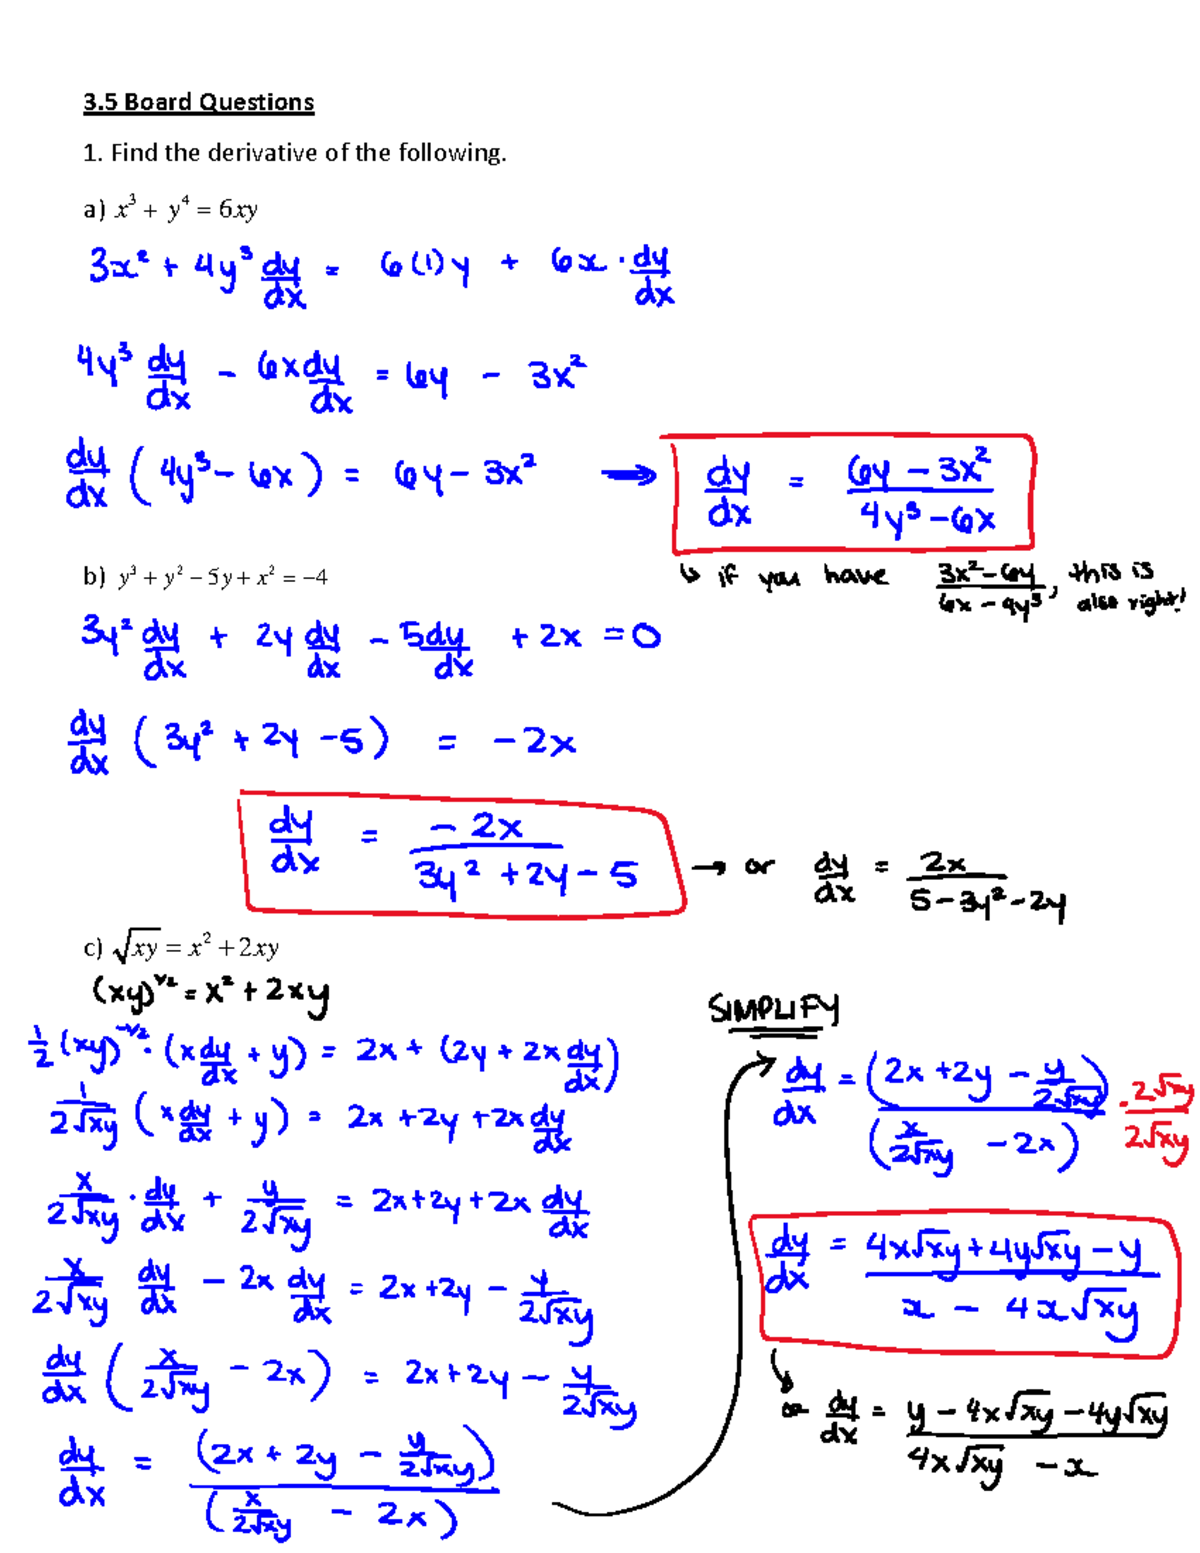 3.5 Board Questions
1. Find the derivative of the following.
a) x³ + y⁴ = 6xy
3x² + 4y³ dy/dx = 6(1)y + 6x · dy/dx
4y³ dy/dx - 6x dy/dx = 6y - 3x²
dy/dx (4y³ - 6x) = 6y - 3x² → dy/dx = (6y - 3x²)/(4y³ - 6x)
↳ if you have (3x² - 6y)/(6x - 4y³), this is also right!
b) y³ + y² − 5y + x² = −4
3y² dy/dx + 2y dy/dx - 5 dy/dx + 2x = 0
dy/dx (3y² + 2y - 5) = -2x
dy/dx = -2x/(3y² + 2y - 5) → or dy/dx = 2x/(5 - 3y² - 2y)
c) √xy = x² + 2xy
(xy)^1/2 = x² + 2xy
1/2 (xy)^-1/2 · (x dy/dx + y) = 2x + (2y + 2x dy/dx)
1/(2√xy) (x dy/dx + y) = 2x + 2y + 2x dy/dx
x/(2√xy) · dy/dx + y/(2√xy) = 2x + 2y + 2x dy/dx
x/(2√xy) dy/dx - 2x dy/dx = 2x + 2y - y/(2√xy)
dy/dx (x/(2√xy) - 2x) = 2x + 2y - y/(2√xy)
dy/dx = (2x + 2y - y/(2√xy))/(x/(2√xy) - 2x)
SIMPLIFY
dy/dx = (2x + 2y - y/(2√xy))/(x/(2√xy) - 2x) · 2√xy/2√xy
dy/dx = (4x√xy + 4y√xy - y)/(x - 4x√xy)
or dy/dx = (y - 4x√xy - 4y√xy)/(4x√xy - x)